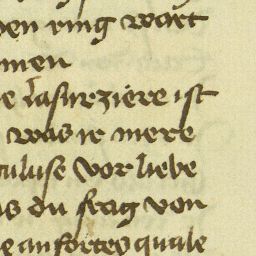 den ring wart
men
e lasurziere ist
was ir mere
culuse vor liebe
as du frag von
e anfortes quale